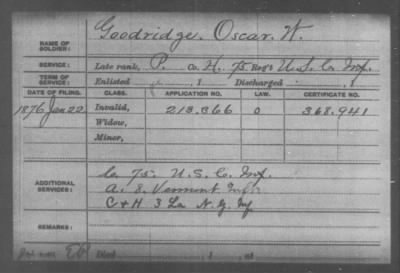 Goodridge, Oscar W.
NAME OF SOLDIER:
SERVICE: Late rank, P. Co. H, 75 Reg't U.S.C. Inf.
TERM OF SERVICE: Enlisted , 1 Discharged , 1
DATE OF FILING. CLASS. APPLICATION NO. LAW. CERTIFICATE NO.
1876 Jan 22 Invalid, 213.366 O 368.941
Widow,
Minor,
ADDITIONAL SERVICES: Co 75. U.S.C. Inf.
A. 8. Vermont Inf
C & H 3 La N.G. Inf
REMARKS:
Died , 1 , at